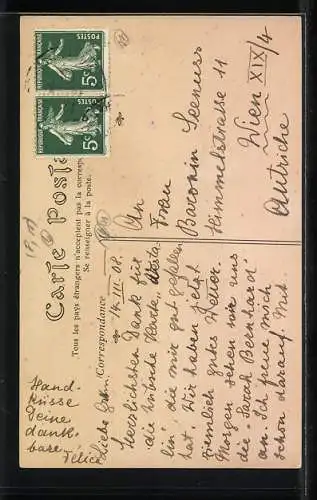 REPUBLIQUE FRANÇAISE
POSTES
5c
REPUBLIQUE FRANÇAISE
POSTES
5c
Carte Postale
Tous les pays étrangers n'acceptent pas la correspondance
Se renseigner à la poste.
(Correspondance
14. III. 08.
Liebe
Herzlichsten Dank für
die hübsche Karte,
lin" die mir gut gefallen
hat. Wir haben jetzt
ziemlich gutes Wetter.
Morgen sehen wir uns
die Sarah Bernhardt
an. Ich freue mich
schon darauf. Mit
Hand-
küsse
Deine
dank-
bare
Félice
An
Frau
Baronin Seenuss
Himmelstrasse 11
Wien XIX/4
Autriche